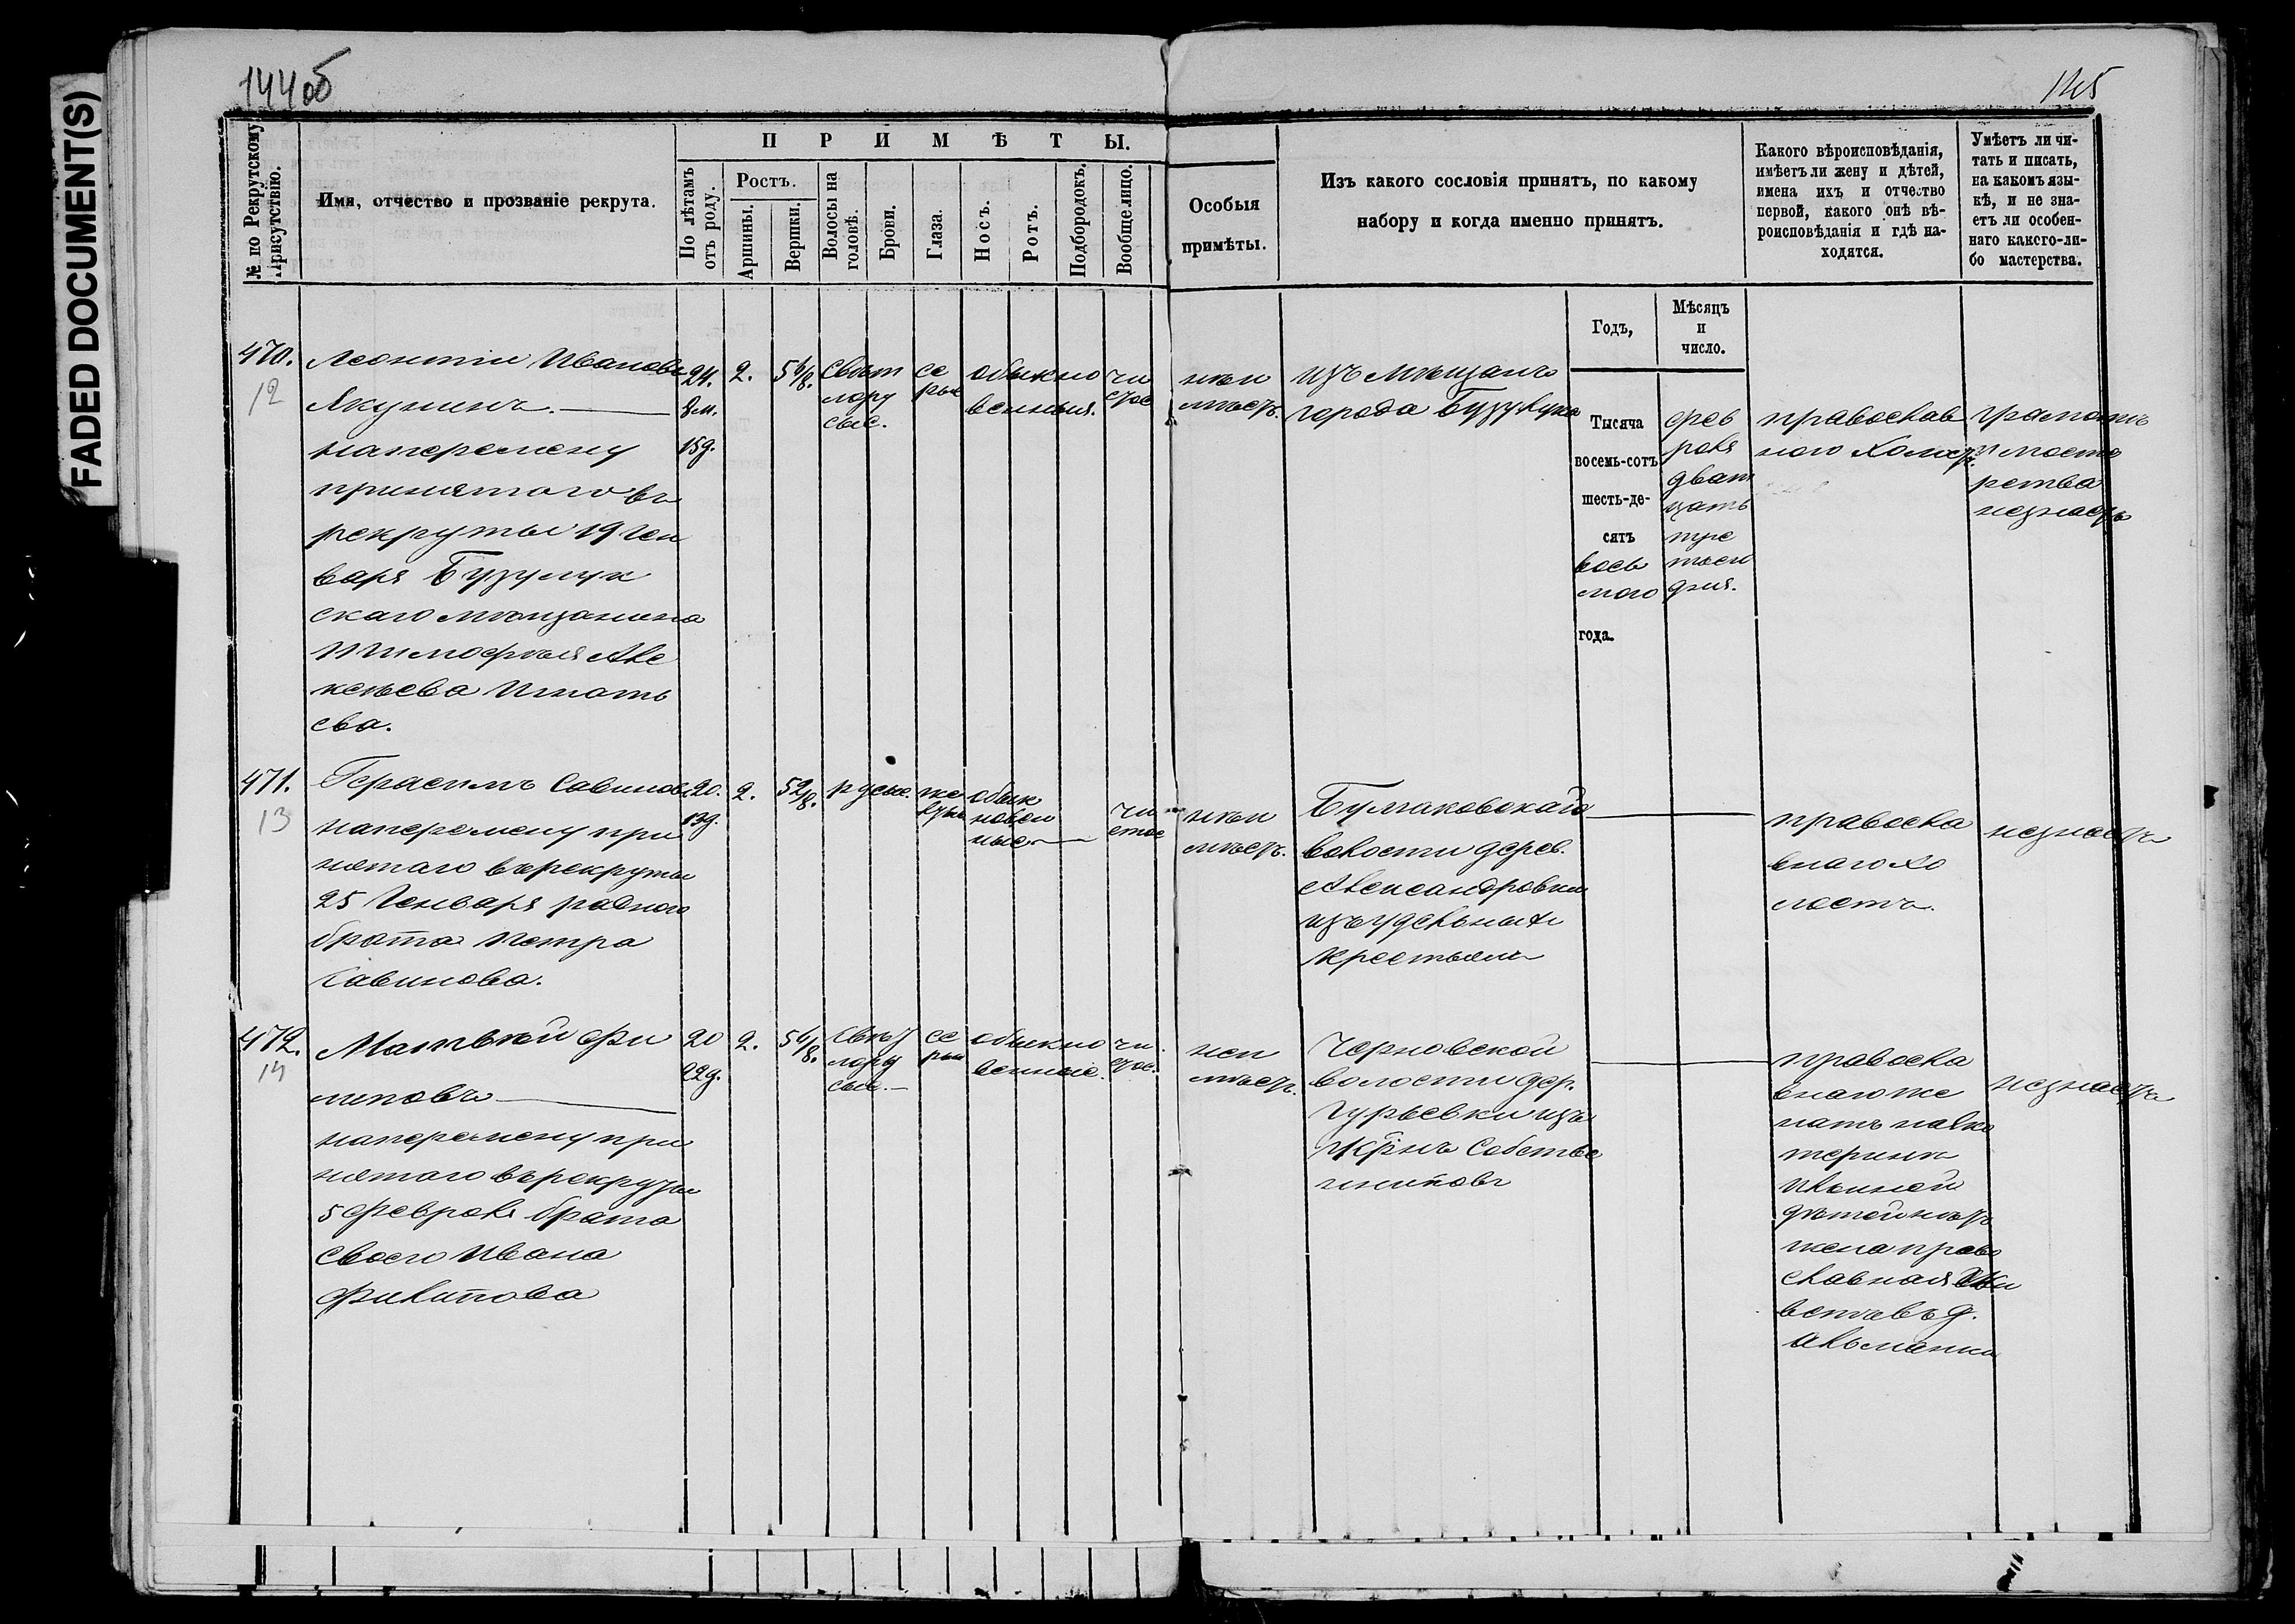 FADED DOCUMENT(S)
144об
145
№ по Рекрутскому Присутствію.
Имя, отчество и прозваніе рекрута.
ПРИМѢТЫ.
По лѣтамъ отъ роду.
Ростъ.
Аршины.
Вершки.
Волосы на головѣ.
Брови.
Глаза.
Носъ.
Ротъ.
Подбородокъ.
Вообще лицо.
Особыя
примѣты.
Изъ какого сословія принятъ, по какому
набору и когда именно принятъ.
Какого вѣроисповѣданія,
имѣетъ ли жену и дѣтей,
имена ихъ и отчество
первой, какого онѣ вѣ-
роисповѣданія и гдѣ на-
ходятся.
Умѣетъ ли чи-
тать и писать,
на какомъ язы-
кѣ, и не зна-
етъ ли особен-
наго какого-ли-
бо мастерства.
Годъ,
Мѣсяцъ
и
число.
470.
12
Леонтій Ивановъ
Якунинъ.
наперемену
принятого въ
рекруты 19 Ген
варя Бузулук
скаго мѣщанина
Тимофѣя Але
ксѣева Игнать
ева.
24.
8 м.
15 д.
2.
5 6/8.
свѣт
лору
сые.
се
рые
обыкно
венныя.
чи
стое
неи
мѣетъ.
изъ мѣщанъ
города Бузулука
Тысяча
восемь-сотъ
шесть-де-
сятъ
вось
мого
года.
фев
раля
двад
цать
тре
тьяго
дня.
православ
ного холостъ
грамотѣ
и масте
рства
незнаетъ
471.
13
Герасимъ Савиновъ
наперемену при
нятаго въ рекруты
25 Генваря родного
брата Петра
Савинова.
20.
13 д.
2.
5 2/8.
русые.
обык
новен
ные
чи
стое
неи
мѣетъ.
волости дерев.
Александровки
изъ удельныхъ
крестьянъ
правосла
внаго хо
лостъ
незнаетъ
472.
14
Матвѣй Фи
липовъ
наперемену при
нятаго въ рекруты
5 Февраля брата
своего Ивана
Филипова
20
22 д.
2.
5 6/8.
свѣт
лору
сые.
се
рые
обыкно
венные.
чи
стое.
неи
мѣетъ.
Черновской
волости дер.
Гурьевки изъ
крнъ Собстве
нниковъ
правосла
внаго же
натъ на Ека
теринѣ
Ильиной
дѣтей нѣтъ
жена право
славная жи
ветъ въ д.
незнаетъ